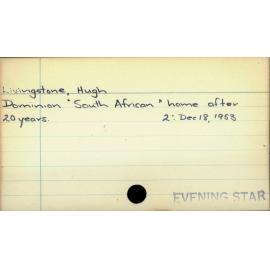 Livingstone, Hugh
Dominion "South African" home after
20 years. 2: Dec 18, 1953
EVENING STAR